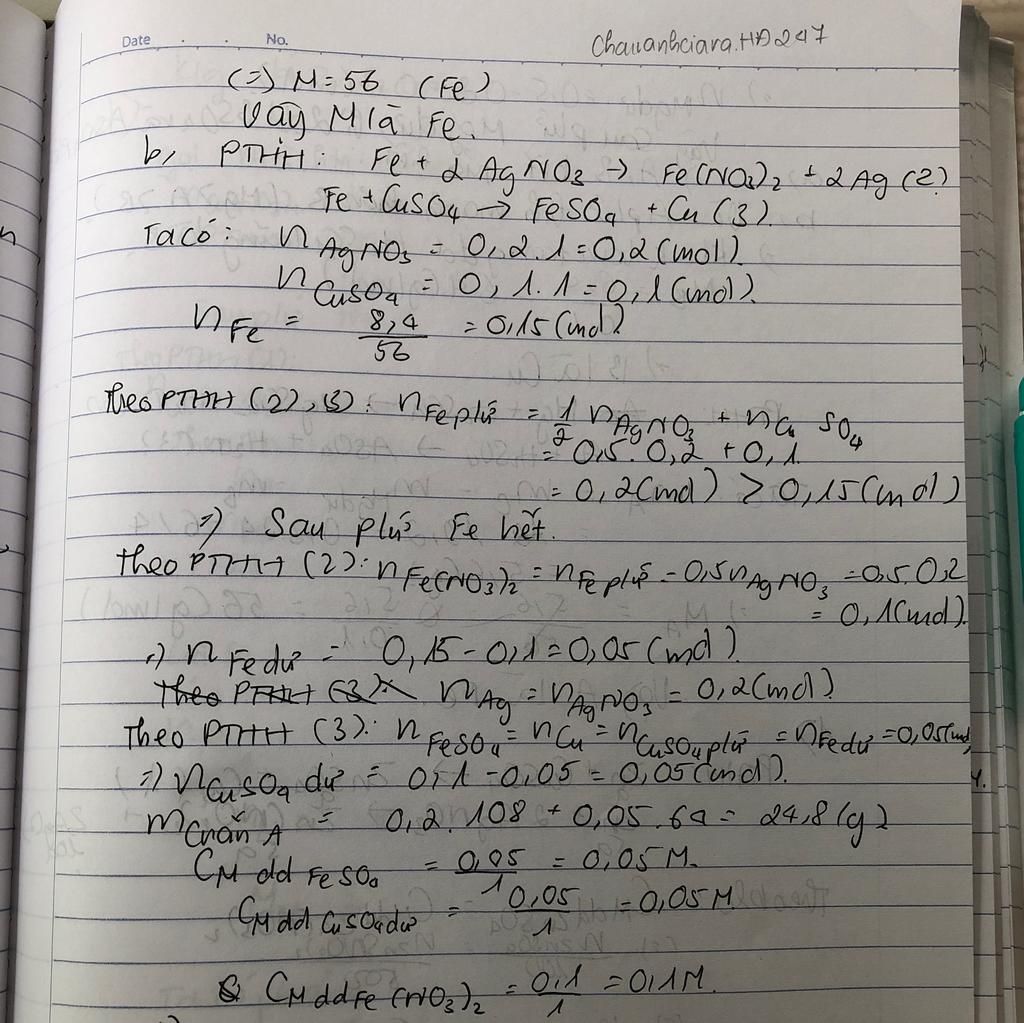 Date . . . No. Chauanhciara.HĐ247
(=) M=56 (Fe)
Vậy M là Fe.
b, PTHH: Fe + 2 AgNO3 → Fe(NO3)2 + 2Ag (2)
Fe + CuSO4 → FeSO4 + Cu (3).
Ta có: n AgNO3 = 0,2.1 = 0,2 (mol).
n CuSO4 = 0,1.1 = 0,1 (mol).
n Fe = 8,4/56 = 0,15 (mol)
theo PTHH (2),(3): n Fe pứ = 1/2 n AgNO3 + n CuSO4
= 0,5.0,2 + 0,1.
= 0,2 (mol) > 0,15 (mol)
=) Sau pứ Fe hết.
theo PTHH (2): n Fe(NO3)2 = n Fe pứ = 0,5 n AgNO3 = 0,5.0,2
= 0,1 (mol).
=) n Fe dư = 0,15 - 0,1 = 0,05 (mol).
Theo PTHH (3): n Ag = n AgNO3 = 0,2 (mol).
Theo PTHH (3): n FeSO4 = n Cu = n CuSO4 pứ = n Fe dư = 0,05 (mol)
=) n CuSO4 dư = 0,1 - 0,05 = 0,05 (mol).
m Crắn A = 0,2.108 + 0,05.64 = 24,8 (g)
CM dd FeSO4 = 0,05/1 = 0,05 M.
CM dd CuSO4 dư = 0,05/1 = 0,05 M.
CM dd Fe(NO3)2 = 0,1/1 = 0,1 M.